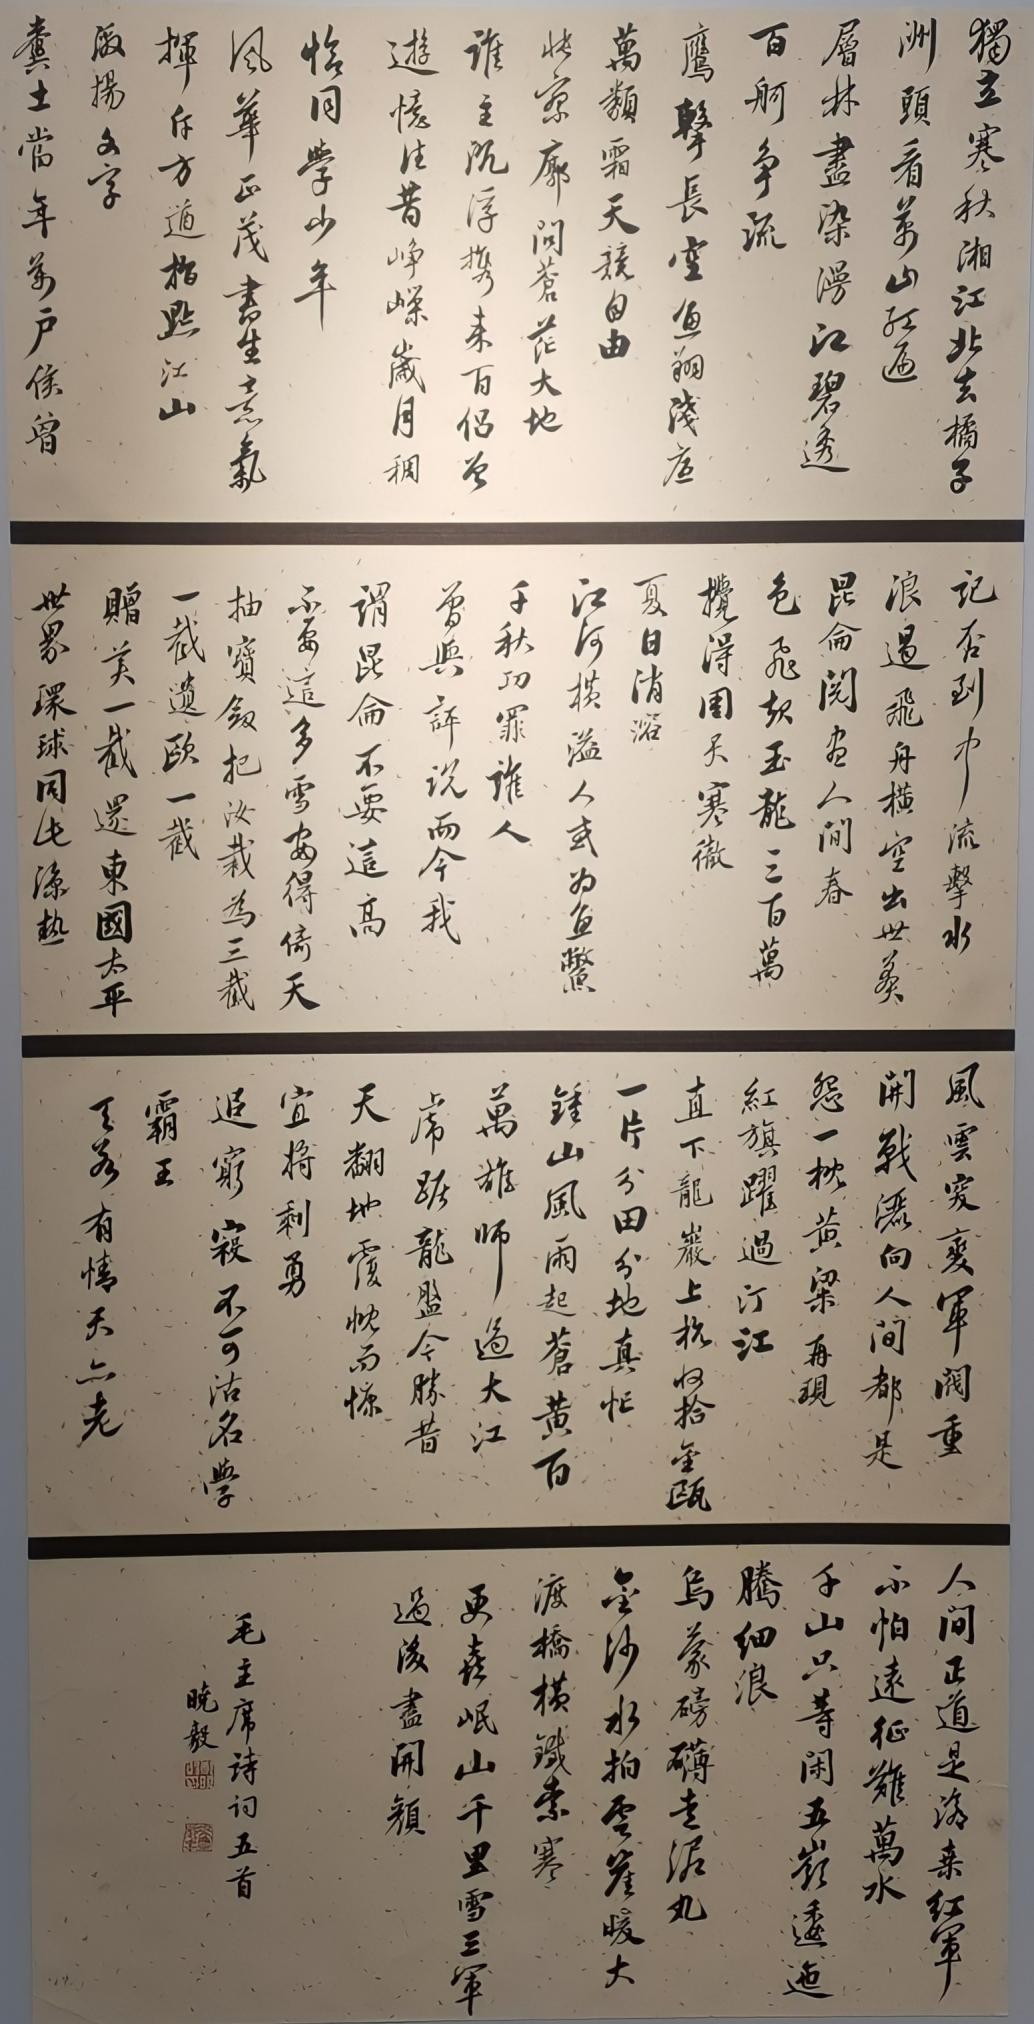 獨立寒秋湘江北去橘子
洲頭看萬山紅遍
層林盡染漫江碧透
百舸争流
鷹擊長空魚翔淺底
萬類霜天競自由
悵寥廓問蒼茫大地
誰主沉浮携来百侣曾
遊憶往昔崢嶸歲月稠
恰同學少年
風華正茂書生意氣
揮斥方遒指點江山
激揚文字
糞土當年萬户侯曾
記否到中流擊水
浪遏飛舟橫空出世莽
昆侖閲盡人間春
色飛起玉龍三百萬
攪得周天寒徹
夏日消溶
江河橫溢人或为魚鱉
千秋功罪誰人
曾與評说而今我
謂昆侖不要這高
不要這多雪安得倚天
抽寶劍把汝裁為三截
一截遺欧一截
贈美一截還東國太平
世界環球同此涼熱
風雲突變軍閥重
開戰灑向人間都是
怨一枕黄粱再現
紅旗躍過汀江
直下龍巖上杭收拾金甌
一片分田分地真忙
鍾山風雨起蒼黄百
萬雄師過大江
虎踞龍盤今勝昔
天翻地覆慨而慷
宜将剩勇
追窮寇不可沽名學
霸王
天若有情天亦老
人間正道是滄桑红軍
不怕遠征難萬水
千山只等閑五嶺逶迤
騰细浪
烏蒙磅礴走泥丸
金沙水拍雲崖暖大
渡橋橫鐵索寒
更喜岷山千里雪三軍
過後盡開顏
毛主席诗词五首
曉毅